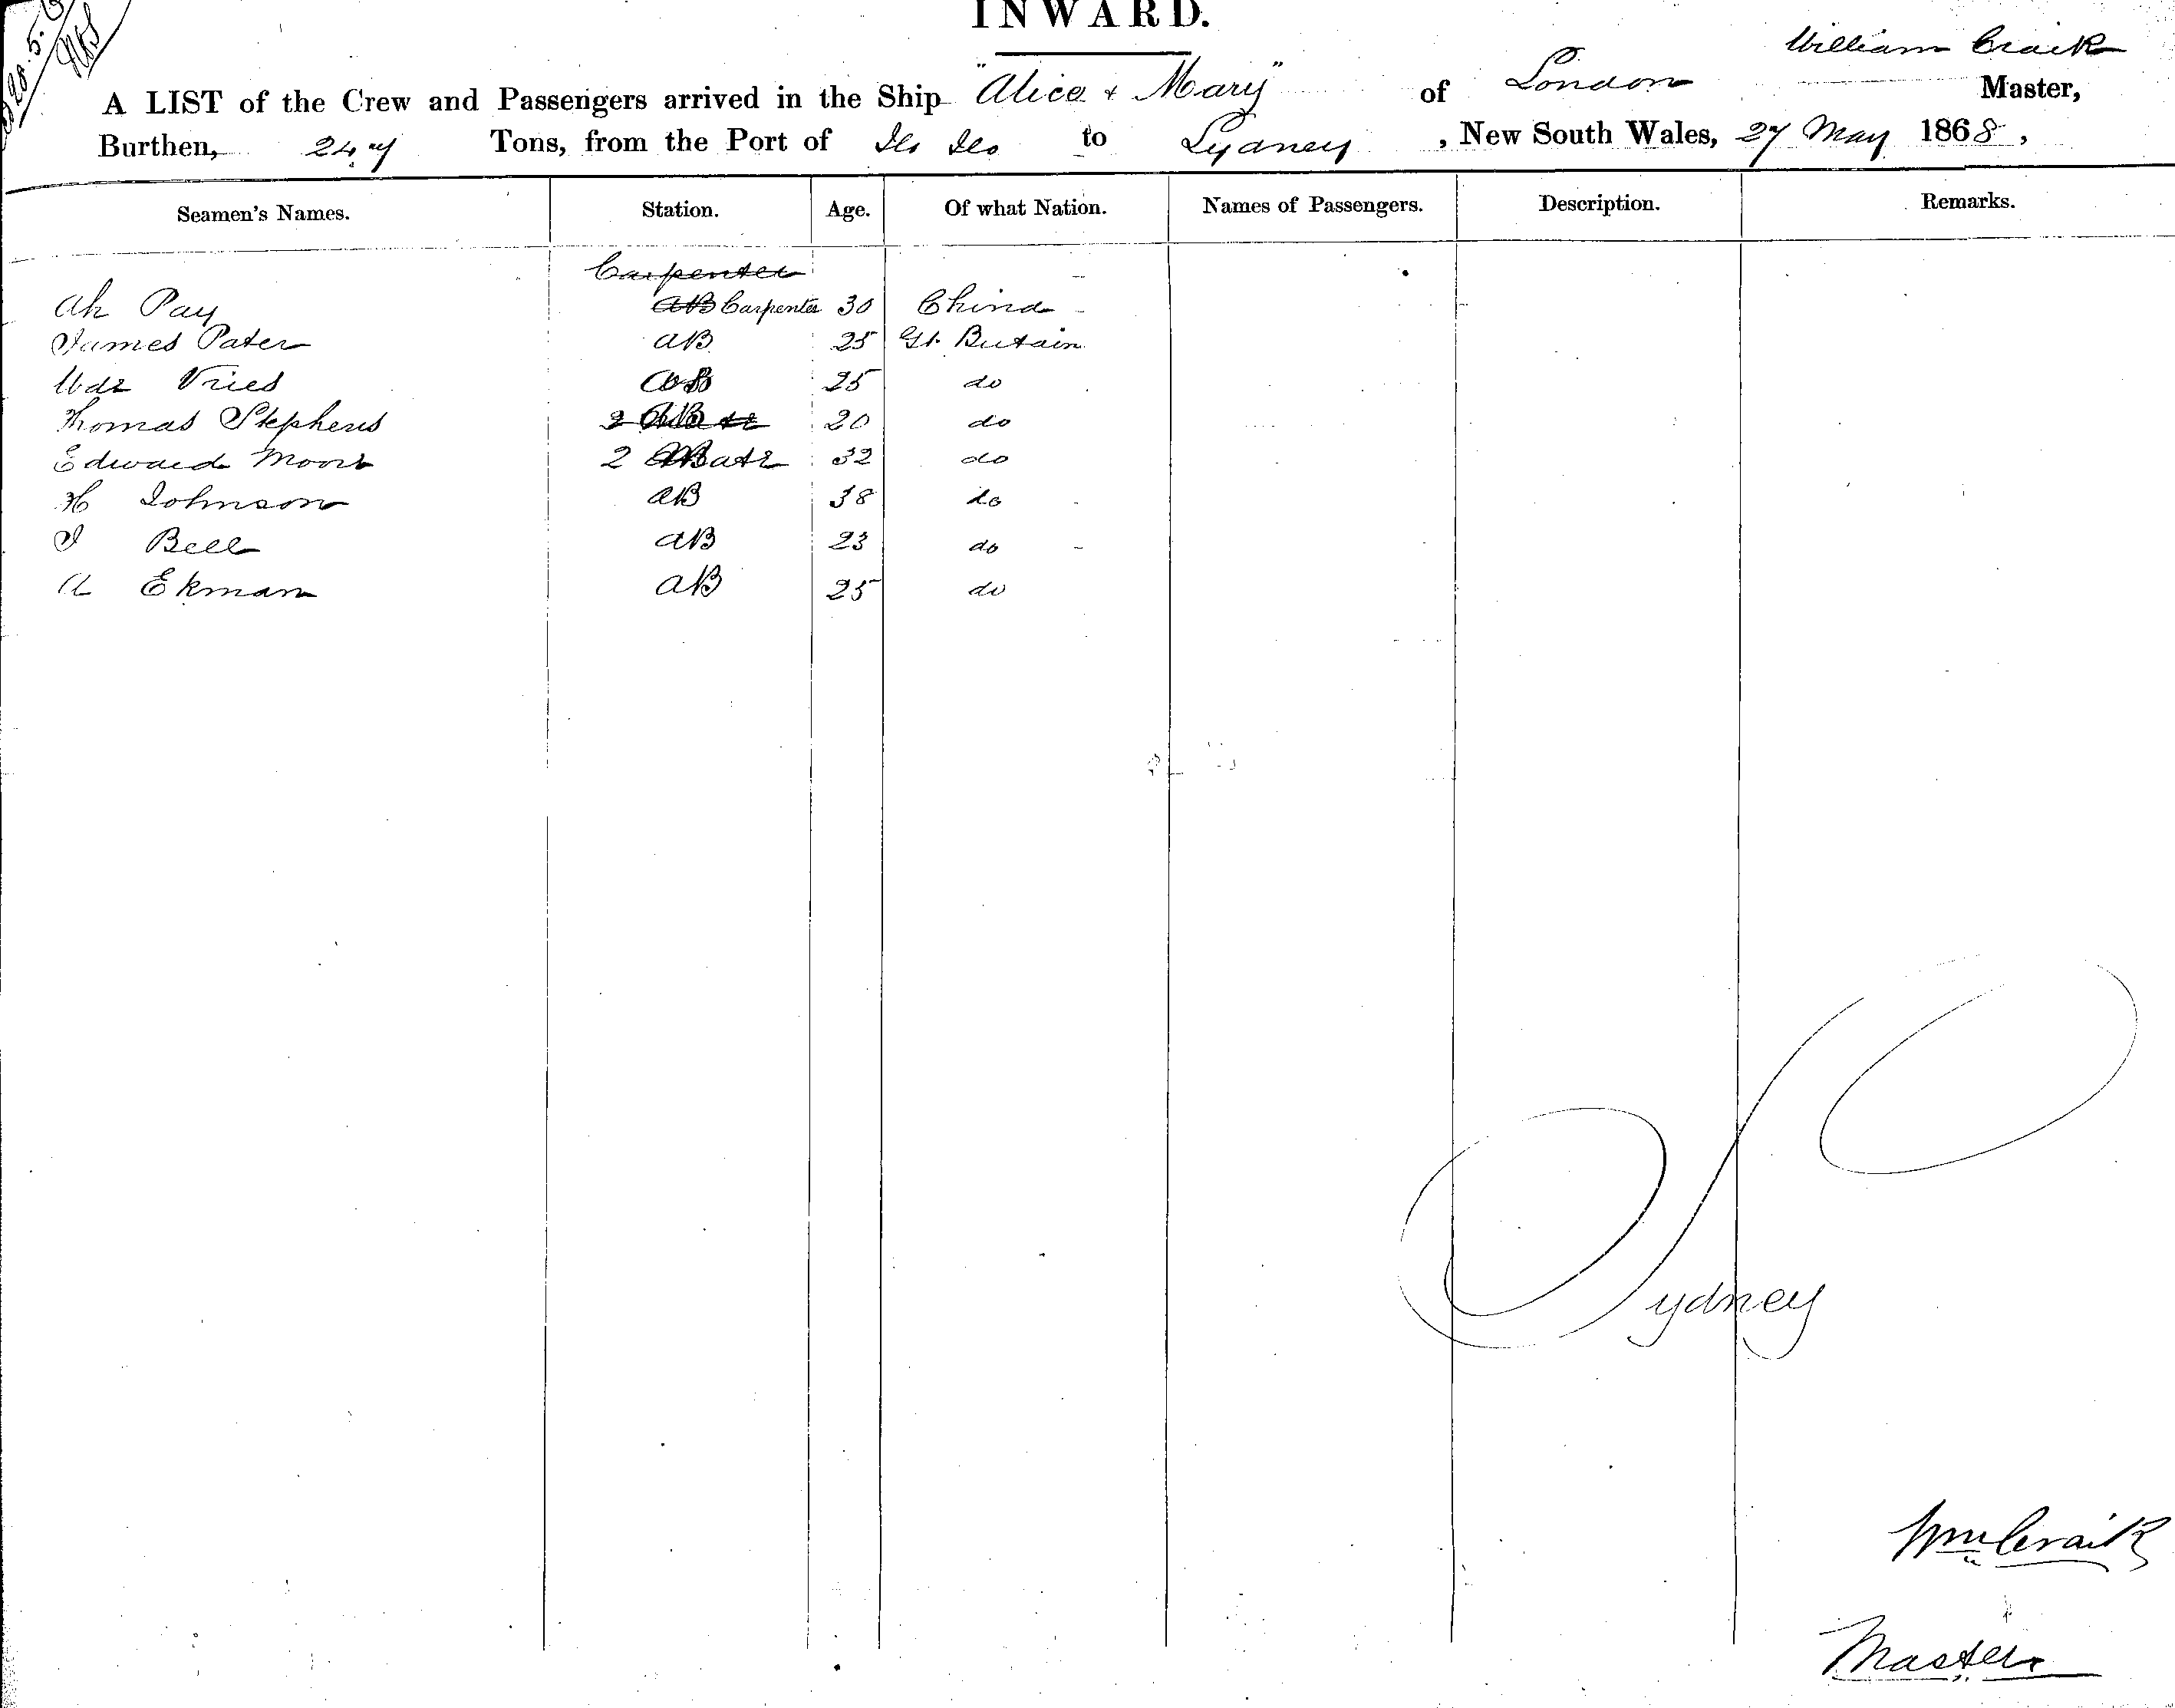 INWARD.
William Craik
A LIST of the Crew and Passengers arrived in the Ship "Alice & Mary" of London Master,
Burthen, 247 Tons, from the Port of Ilo Ilo to Sydney, New South Wales, 27 May 1868,
Seamen's Names. Station. Age. Of what Nation. Names of Passengers. Description. Remarks.
Carpenter
Ah Pay AB Carpenter 30 China
James Pater AB 25 Gt. Britain
Vries AB 25 do
Thomas Stephens 20 do
Edward Moore 2 Mate 32 do
H Johnson AB 38 do
J Bell AB 23 do
A Ekman AB 25 do
Sydney
Wm Craik
Master